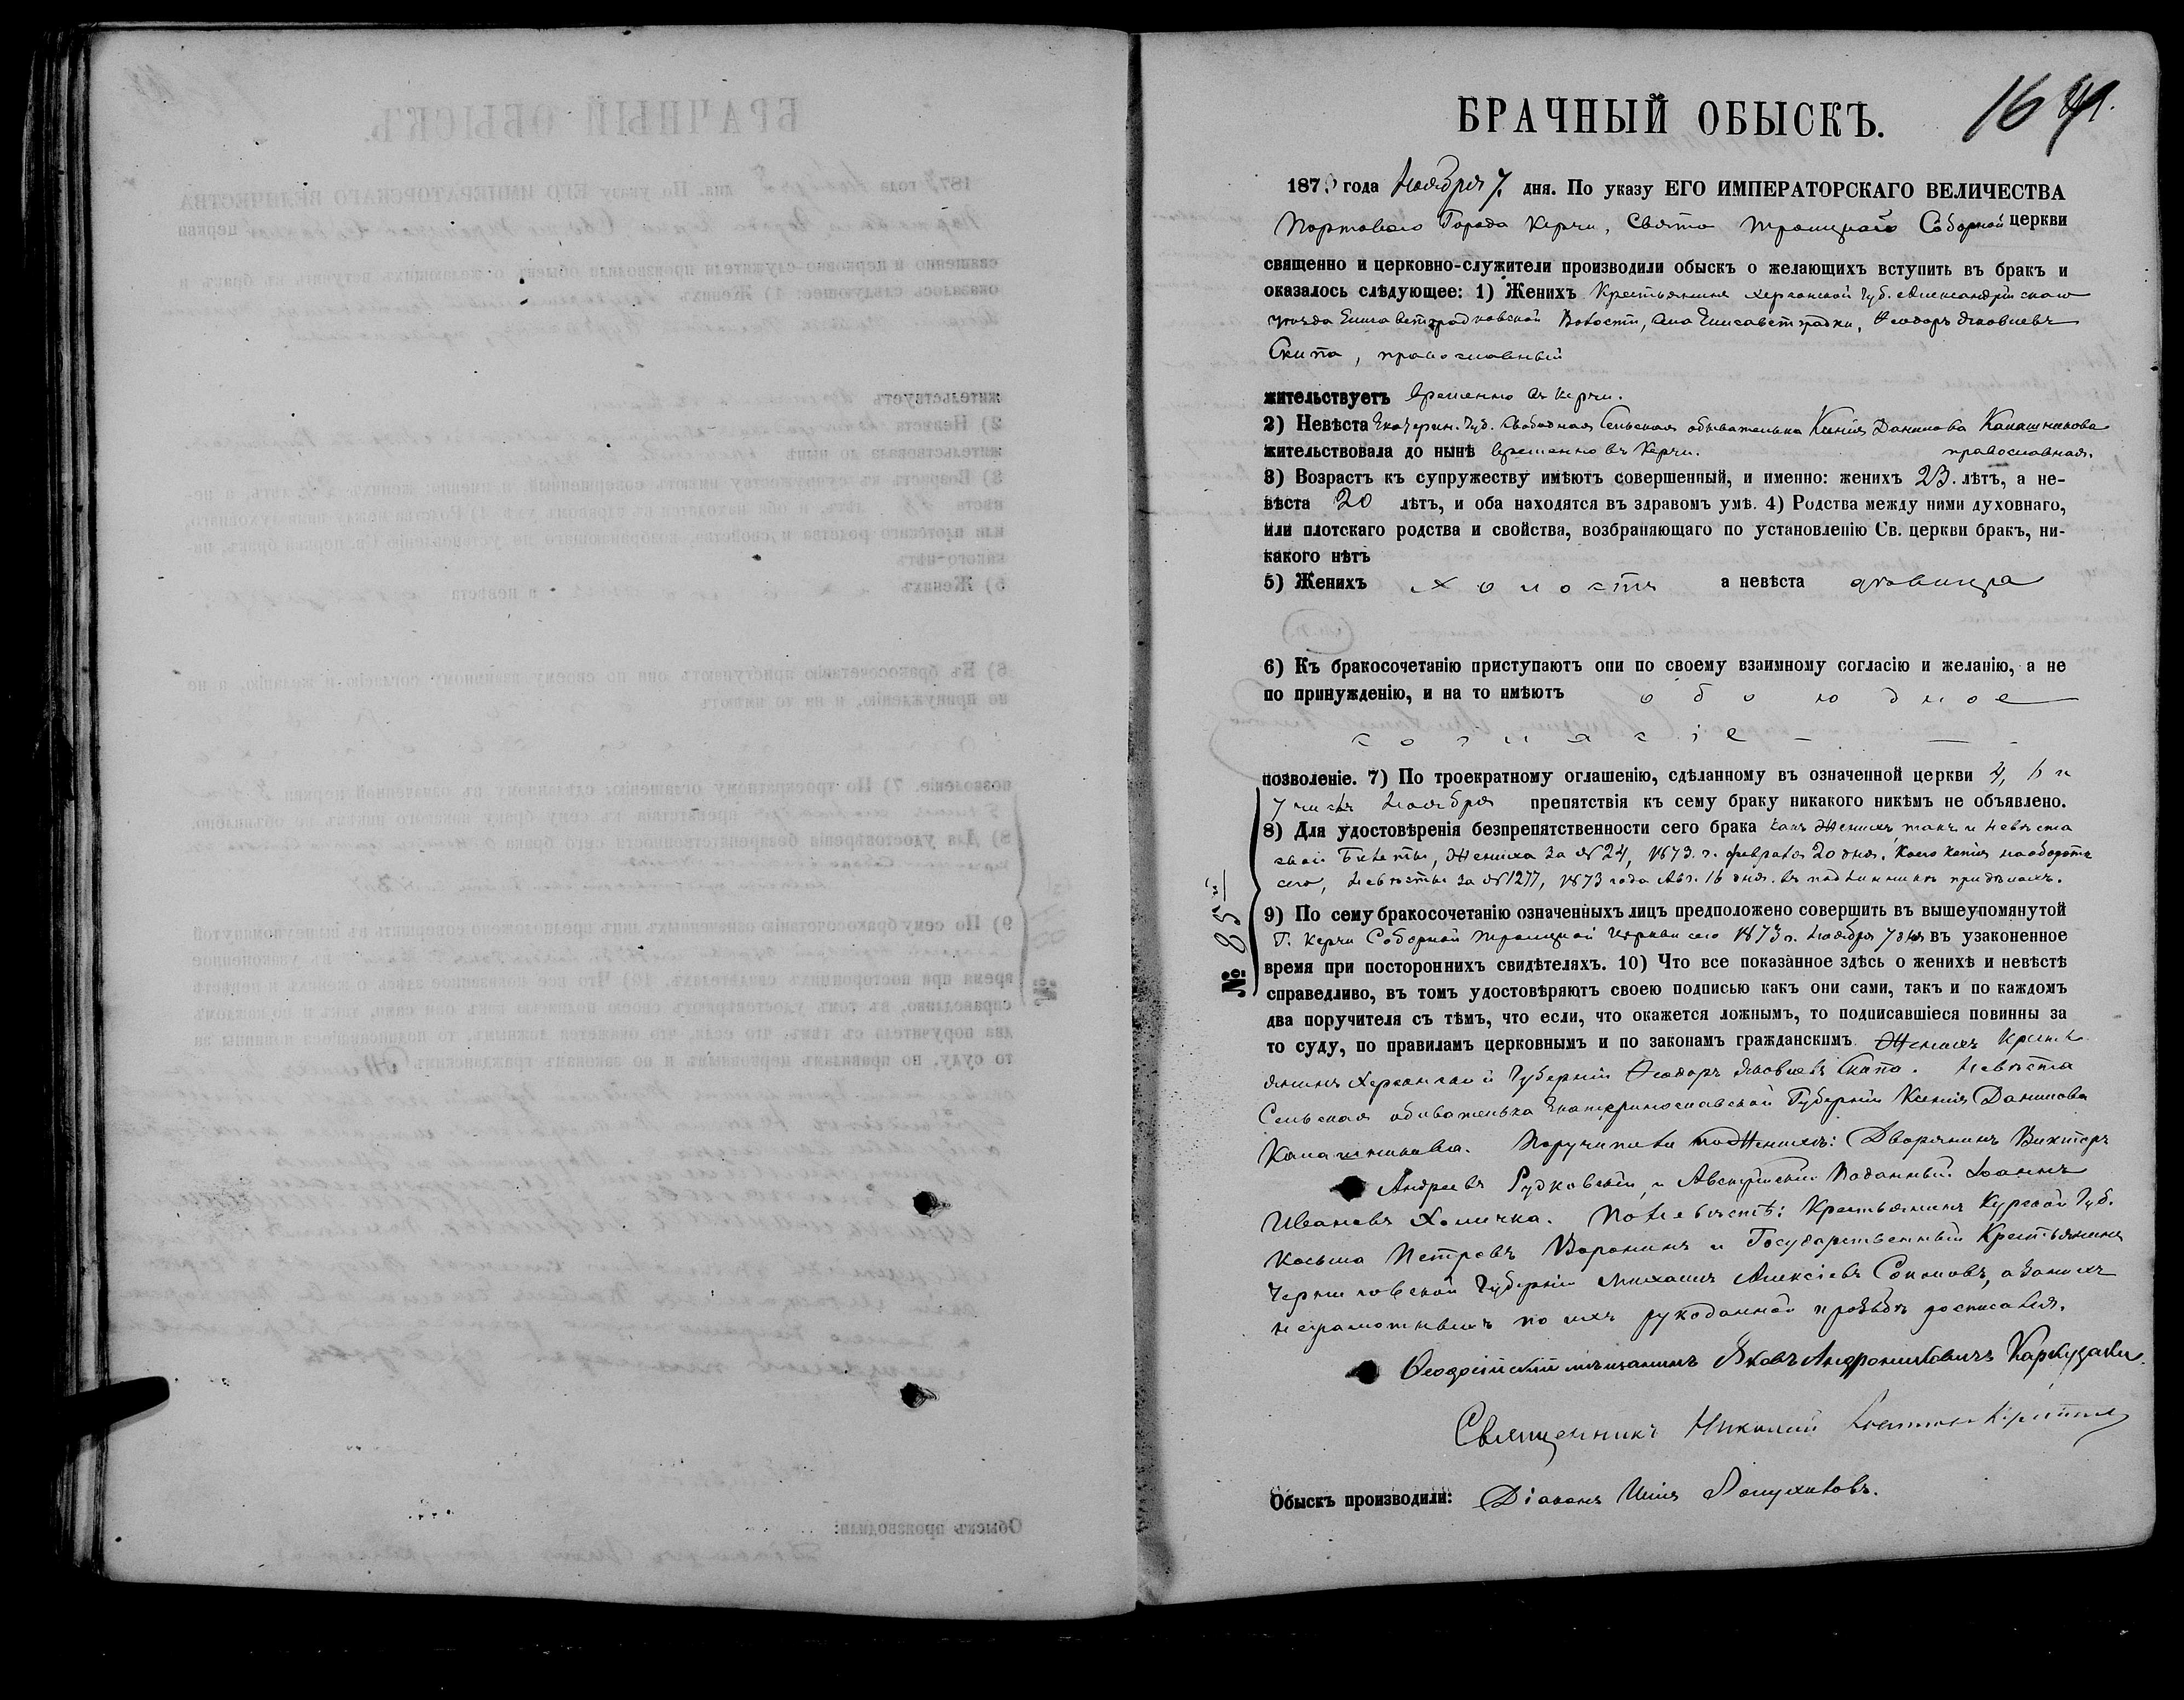 БРАЧНЫЙ ОБЫСКЪ.
187 года Ноября 7. дня. По указу ЕГО ИМПЕРАТОРСКАГО ВЕЛИЧЕСТВА
Портоваго Города Керчи, Свято Троицкаго Соборной церкви
священно и церковно-служители производили обыскъ о желающихъ вступить въ бракъ и
оказалось слѣдующее: 1) Женихъ Крестьянинъ Херсонской Губ. Александрійскаго
уѣзда Елисаветградковской Волости, села Елисаветградки, Ѳеодоръ Яковлевъ
Скипа, православный
жительствуетъ временно въ Керчи.
2) Невѣста Екатерин. Губ. Свободная Сельская обывателька Ксенія Данилова Калашникова
жительствовала до нынѣ временно въ Керчи. православная.
3) Возрастъ къ супружеству имѣютъ совершенный, и именно: женихъ 23. лѣтъ, а не-
вѣста 20 лѣтъ, и оба находятся въ здравомъ умѣ. 4) Родства между ними духовнаго,
или плотскаго родства и свойства, возбраняющаго по установленію Св. церкви бракъ, ни-
какого нѣтъ
5) Женихъ холостъ а невѣста дѣвица
6) Къ бракосочетанію приступаютъ они по своему взаимному согласію и желанію, а не
по принужденію, и на то имѣютъ обоюдное
согласіе
позволеніе. 7) По троекратному оглашенію, сдѣланному въ означенной церкви 4, 6 и
7 числъ Ноября препятствія къ сему браку никакого никѣмъ не объявлено.
8) Для удостовѣренія безпрепятственности сего брака какъ Женихъ, такъ и невѣста
свои Билеты, Жениха за № 24, 1873. г. февраля 20 дня. коего копія наоборотѣ
сего, Невѣсты за № 1277, 1873 года Авг. 16 дня. въ подлинникѣ
№ 85й
9) По сему бракосочетанію означенныхъ лицъ предположено совершить въ вышеупомянутой
Г. Керчи Соборной Троицкой Церкви сего 1873 г. Ноября 7 дня въ узаконенное
время при постороннихъ свидѣтеляхъ. 10) Что все показанное здѣсь о женихѣ и невѣстѣ
справедливо, въ томъ удостовѣряютъ своею подписью какъ они сами, такъ и по каждомъ
два поручителя съ тѣмъ, что если, что окажется ложнымъ, то подписавшіеся повинны за
то суду, по правиламъ церковнымъ и по законамъ гражданскимъ. Женихъ Кресть
янинъ Херсонской Губерніи Ѳеодоръ Яковлевъ Скипа. Невѣста
Сельская обывателька Екатеринославской Губерніи Ксенія Данилова
Калашникова. Поручители по Женихѣ: Дворянинъ Викторъ
Андреевъ Рудковскій, и Австрійскій Поданный Іоаннъ
Ивановъ Хомичка. По Невѣстѣ: Крестьянинъ Курской Губ.
Косьма Петровъ Воронинъ и Государственный Крестьянинъ
Черниговской Губерніи Михаилъ Алексіевъ Сополовъ, а за нихъ
неграмотныхъ по ихъ рукоданной прозьбѣ росписался.
Ѳеодосійскій мѣщанинъ Яковъ Андрониковичъ
Священникъ Николай
Обыскъ производили: Діаконъ Илія Лопухиновъ.